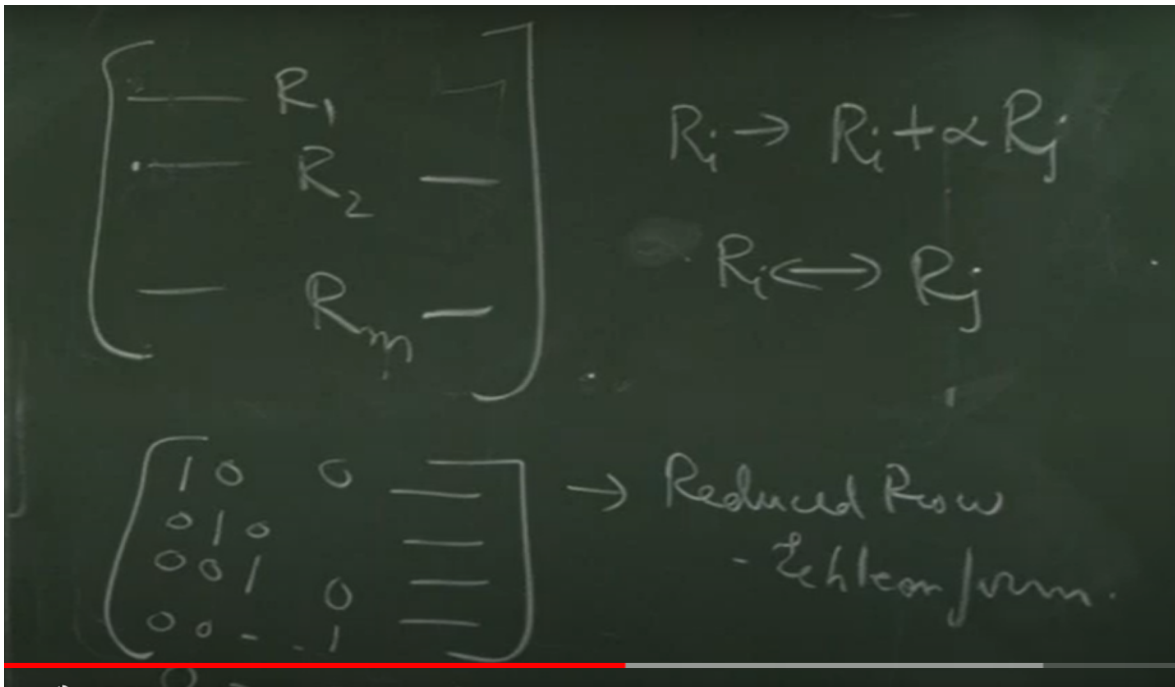 — R₁
— R₂ —
— Rₘ —
Rᵢ → Rᵢ + α Rⱼ
Rᵢ ↔ Rⱼ
1 0 0 —
0 1 0 —
0 0 1 0 —
0 0 - - 1 —
0 -
→ Reduced Row
- Echleon form.